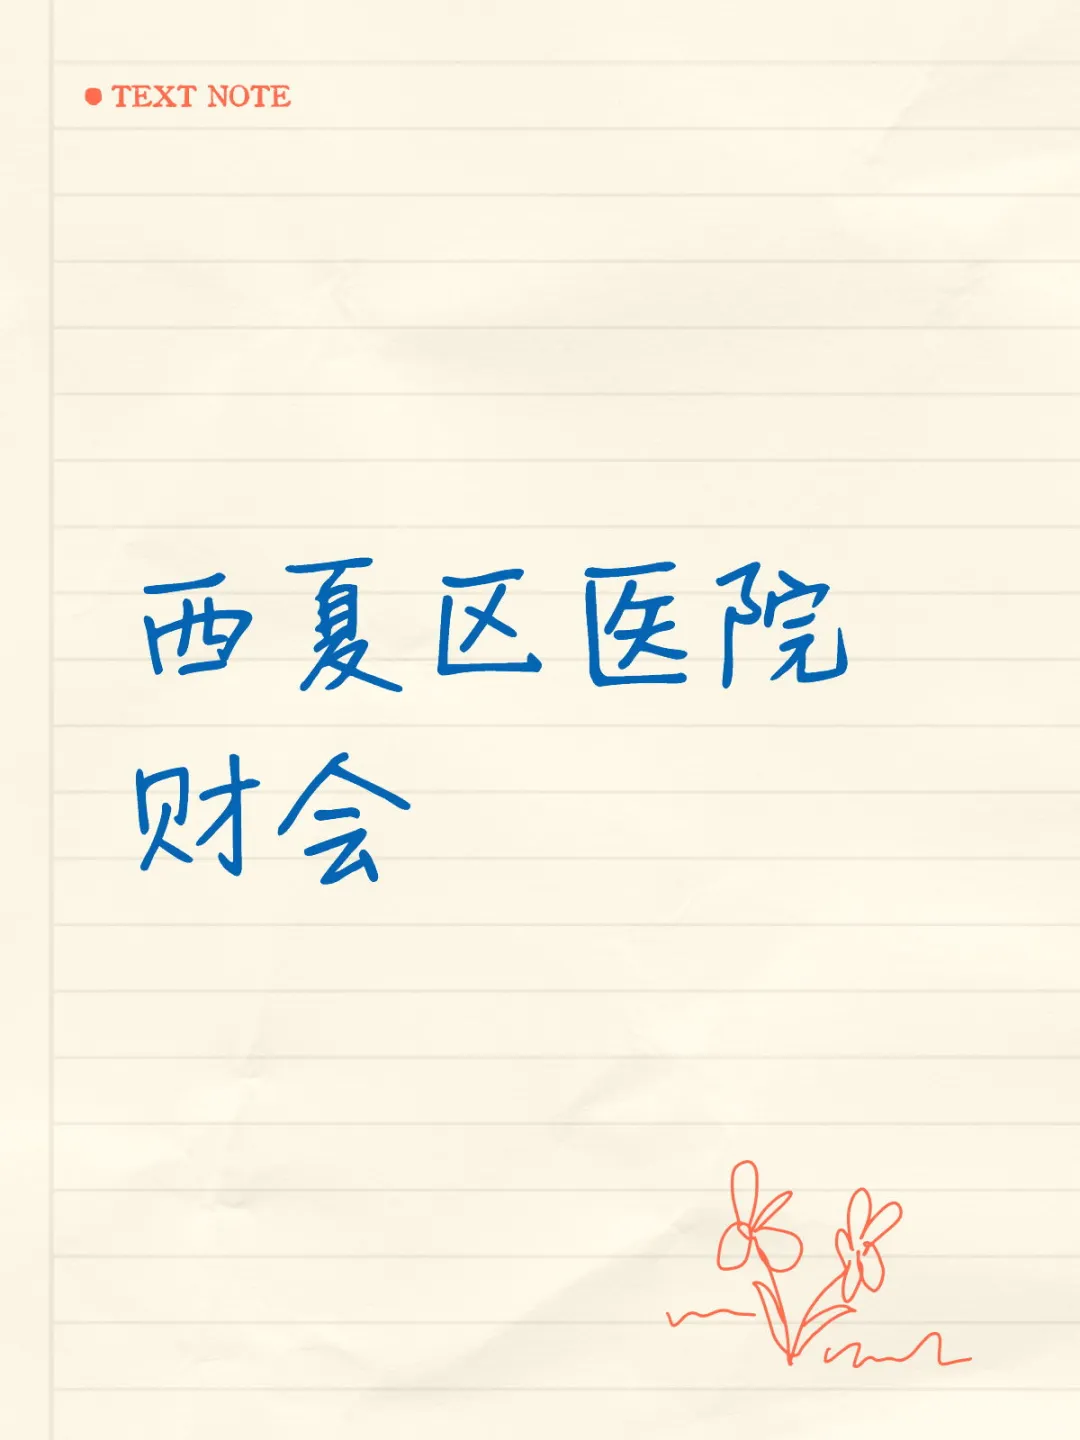 TEXT NOTE
西夏区医院
财会